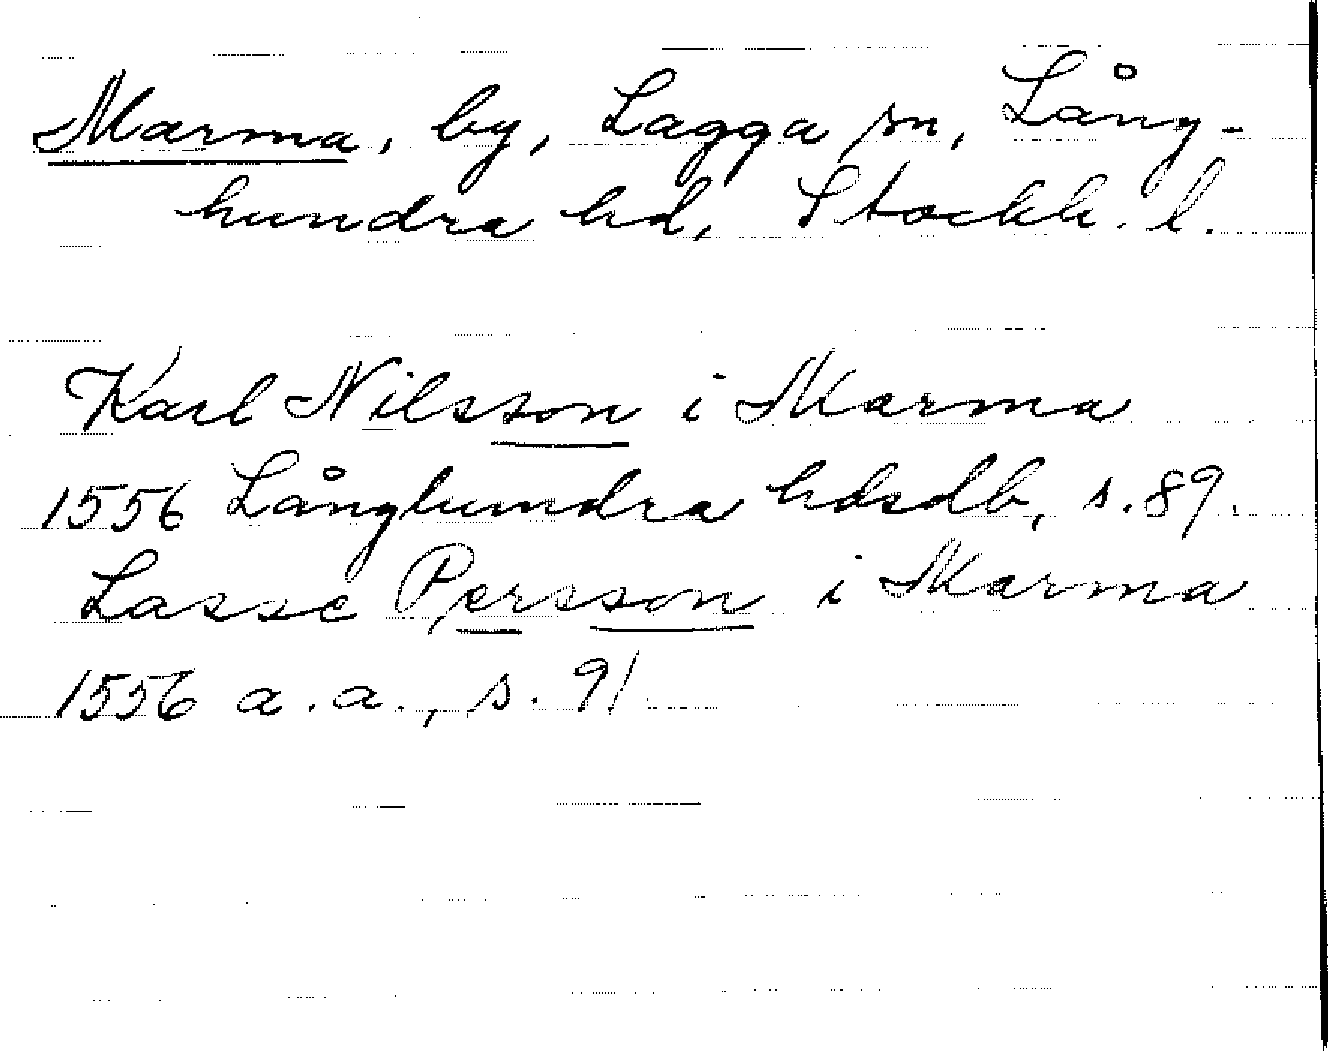 Marma, by, Lagga sn, Lång-
hundra hd, Stockh. l.
Karl Nilsson i Marma
1556 Långhundra hdsdb, s. 89.
Lasse Persson i Marma
1556 a. a., s. 91.